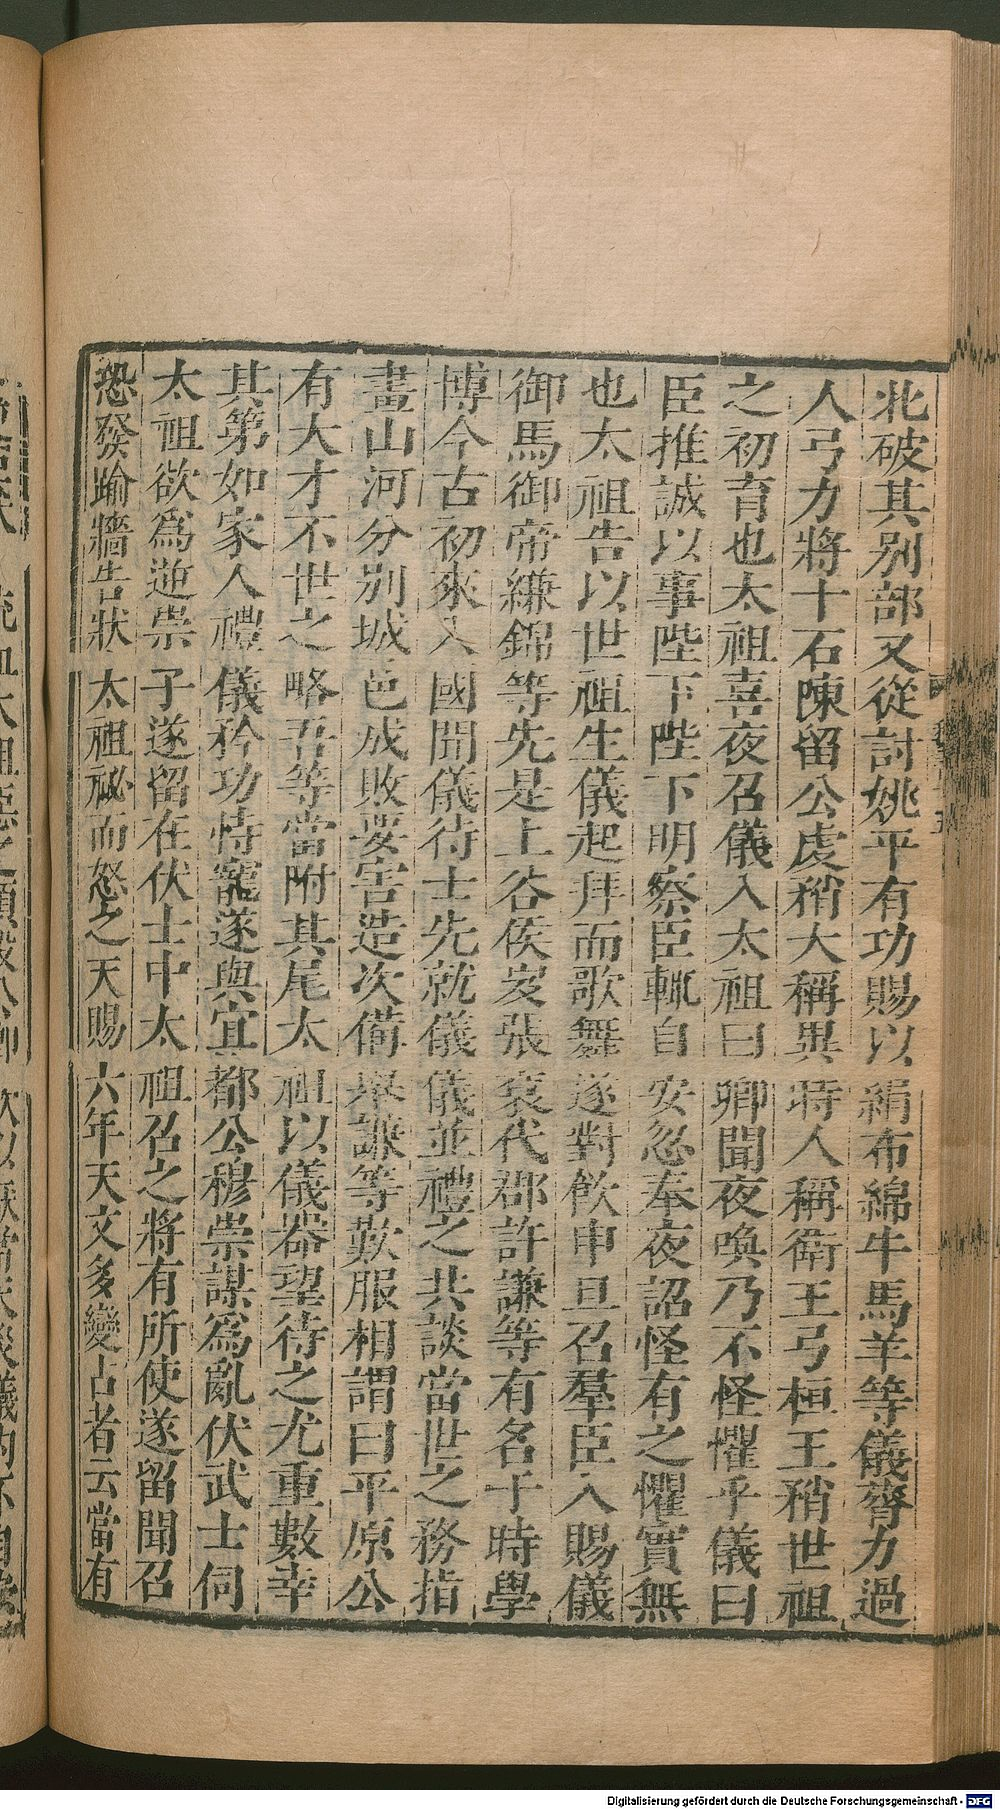 北破其别部又從討姚平有功賜以絹布綿牛馬羊等儀膂力過
人弓力將十石陳留公虔矟大稱異時人稱衛王弓桓王矟世祖
之初育也太祖喜夜召儀入太祖曰卿聞夜喚乃不怪懼乎儀曰
臣推誠以事陛下陛下明察臣輒自安忽奉夜詔怪有之懼實無
也太祖告以世祖生儀起拜而歌舞遂對飲申旦召羣臣入賜儀
御馬御帝縑錦等先是上谷侯岌張袞代郡許謙等有名于時學
博今古初來入國聞儀待士先就儀儀並禮之共談當世之務指
畫山河分别城邑成敗要害造次備舉謙等歎服相謂曰平原公
有大才不世之略吾等當附其尾太祖以儀器望待之尤重數幸
其第如家人禮儀矜功恃寵遂與宜都公穆崇謀爲亂伏武士伺
太祖欲爲逆崇子遂留在伏士中太祖召之將有所使遂留聞召
恐發踰牆告狀太祖祕而恕之天賜六年天文多變占者云當有
Digitalisierung gefördert durch die Deutsche Forschungsgemeinschaft - DFG